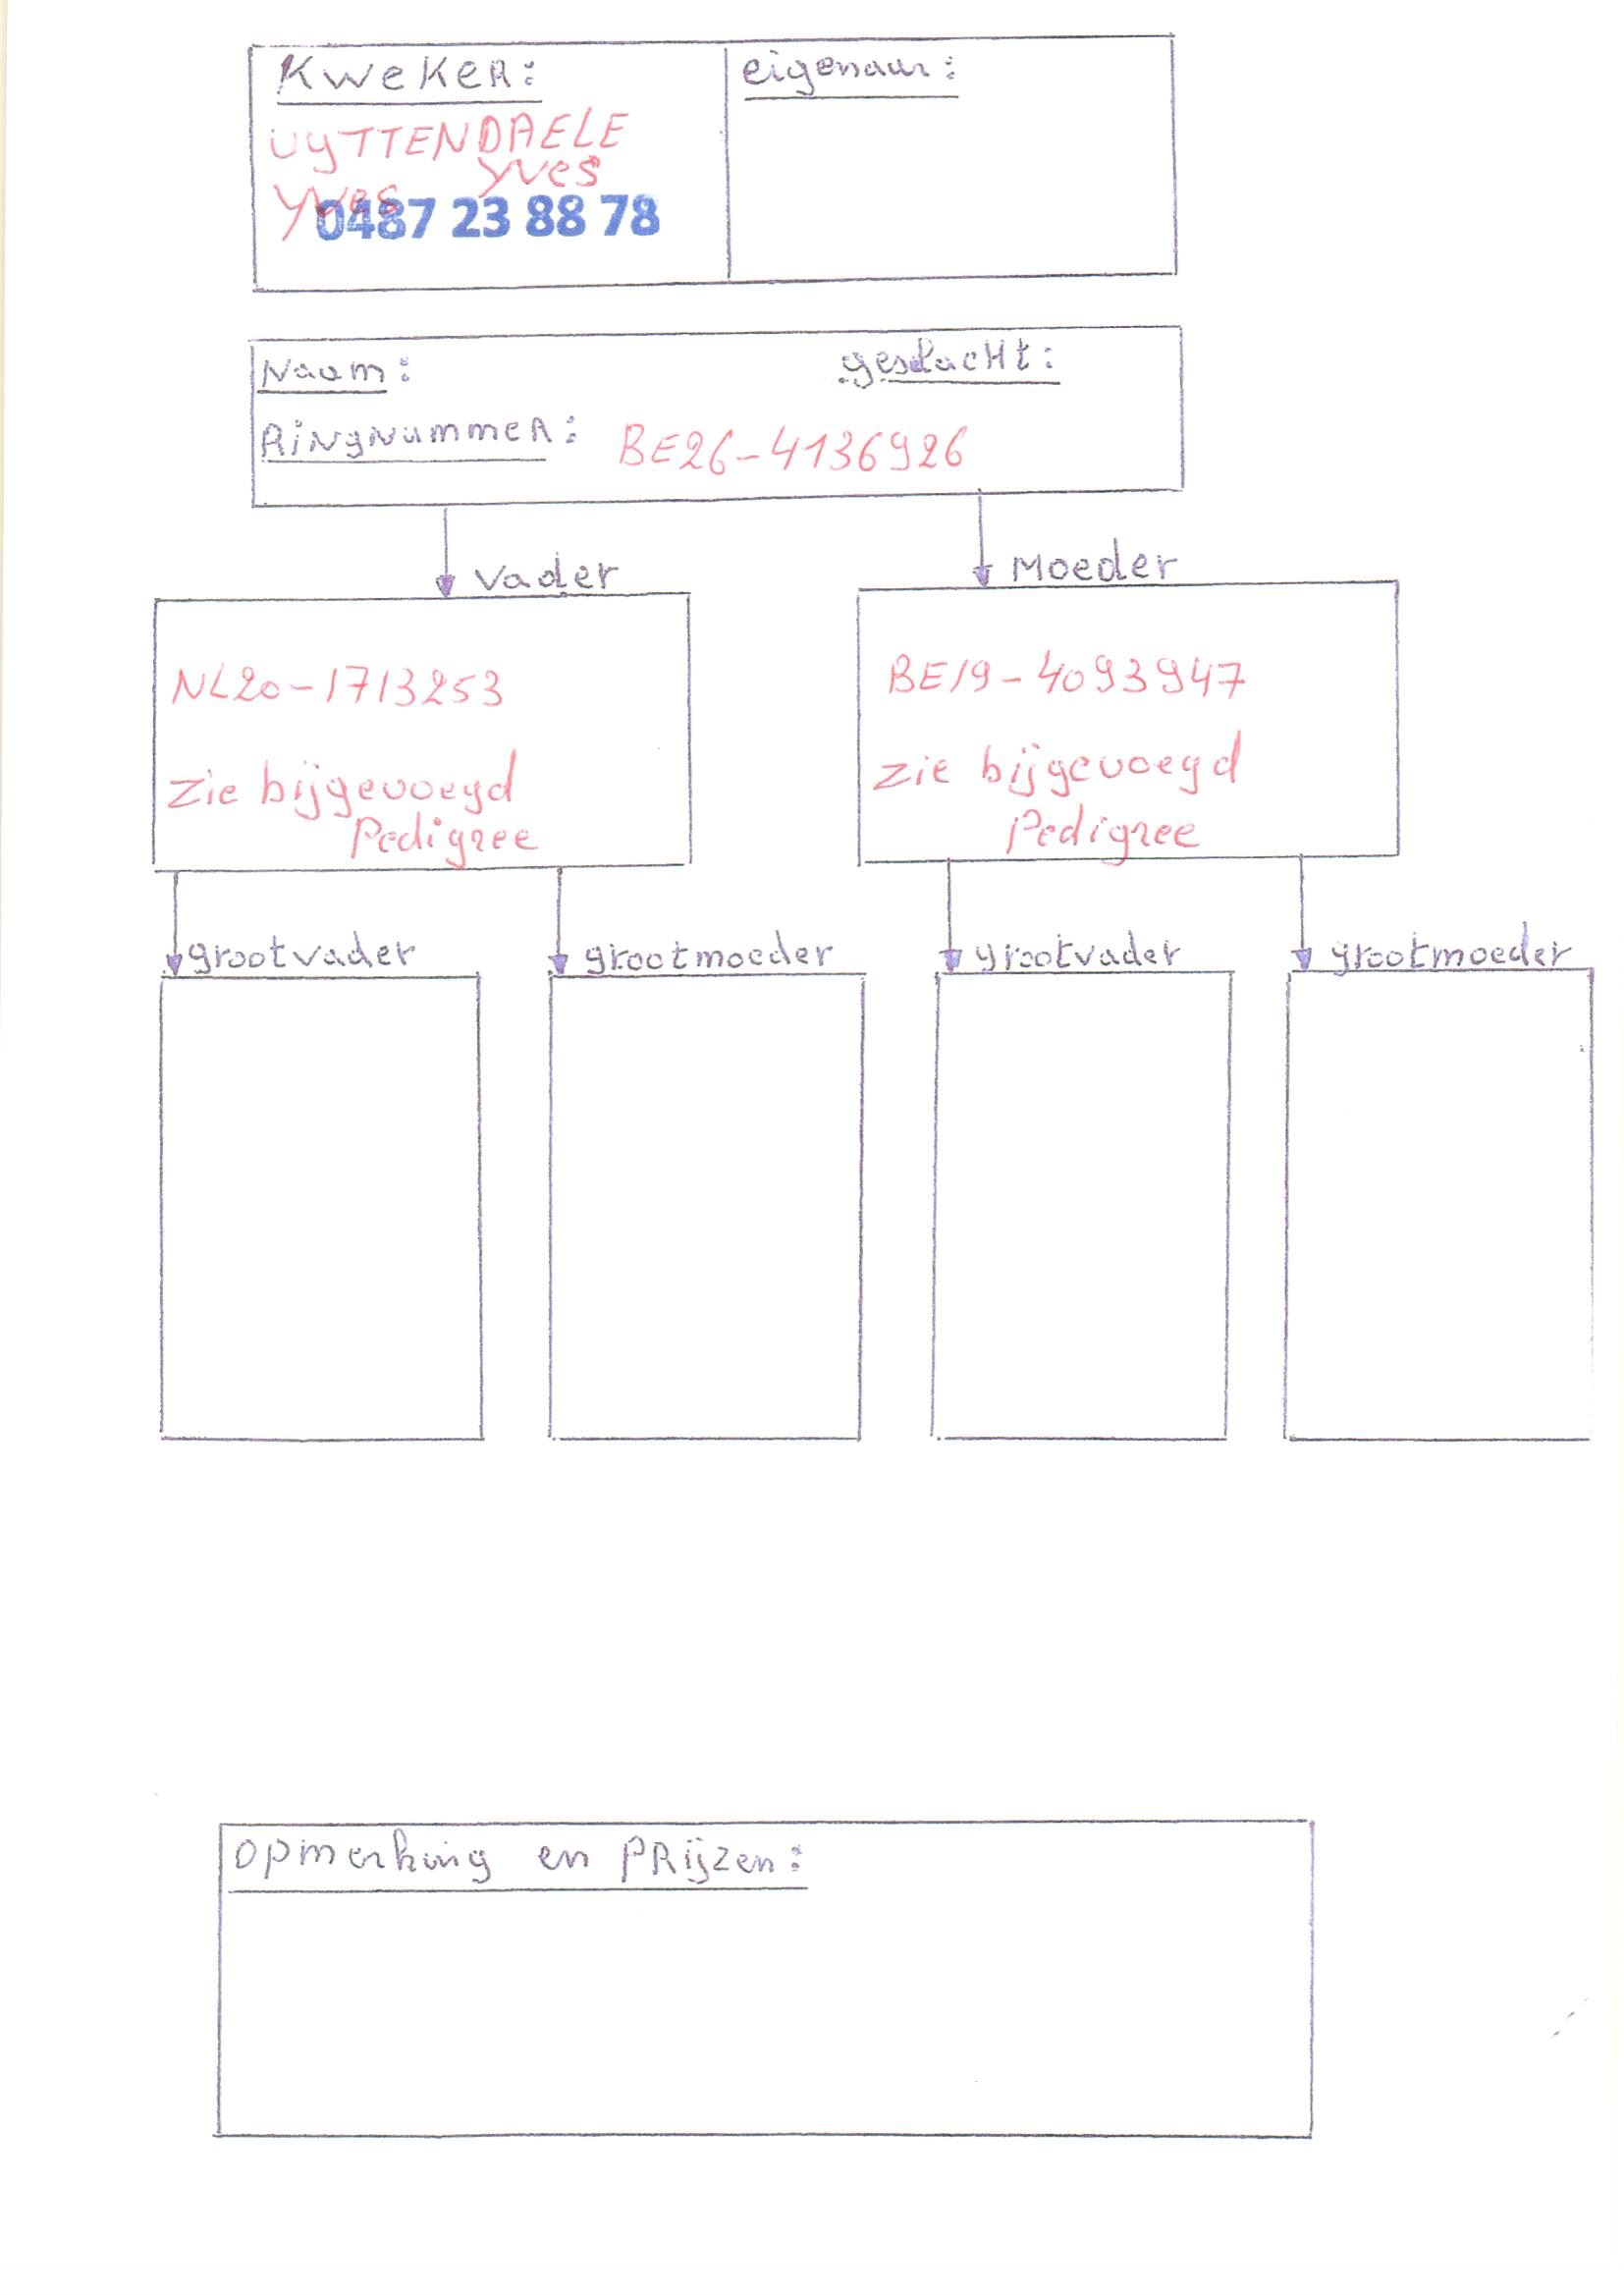 KWEKER:
UYTTENDAELE
YVES
YVES
0487 23 88 78
eigenaar:
Naam:
geslacht:
Ringnummer: BE26-4136926
Vader
NL20-1713253
Zie bijgevoegd
Pedigree
Moeder
BE19-4093947
Zie bijgevoegd
Pedigree
grootvader
grootmoeder
grootvader
grootmoeder
Opmerking en PRijzen: